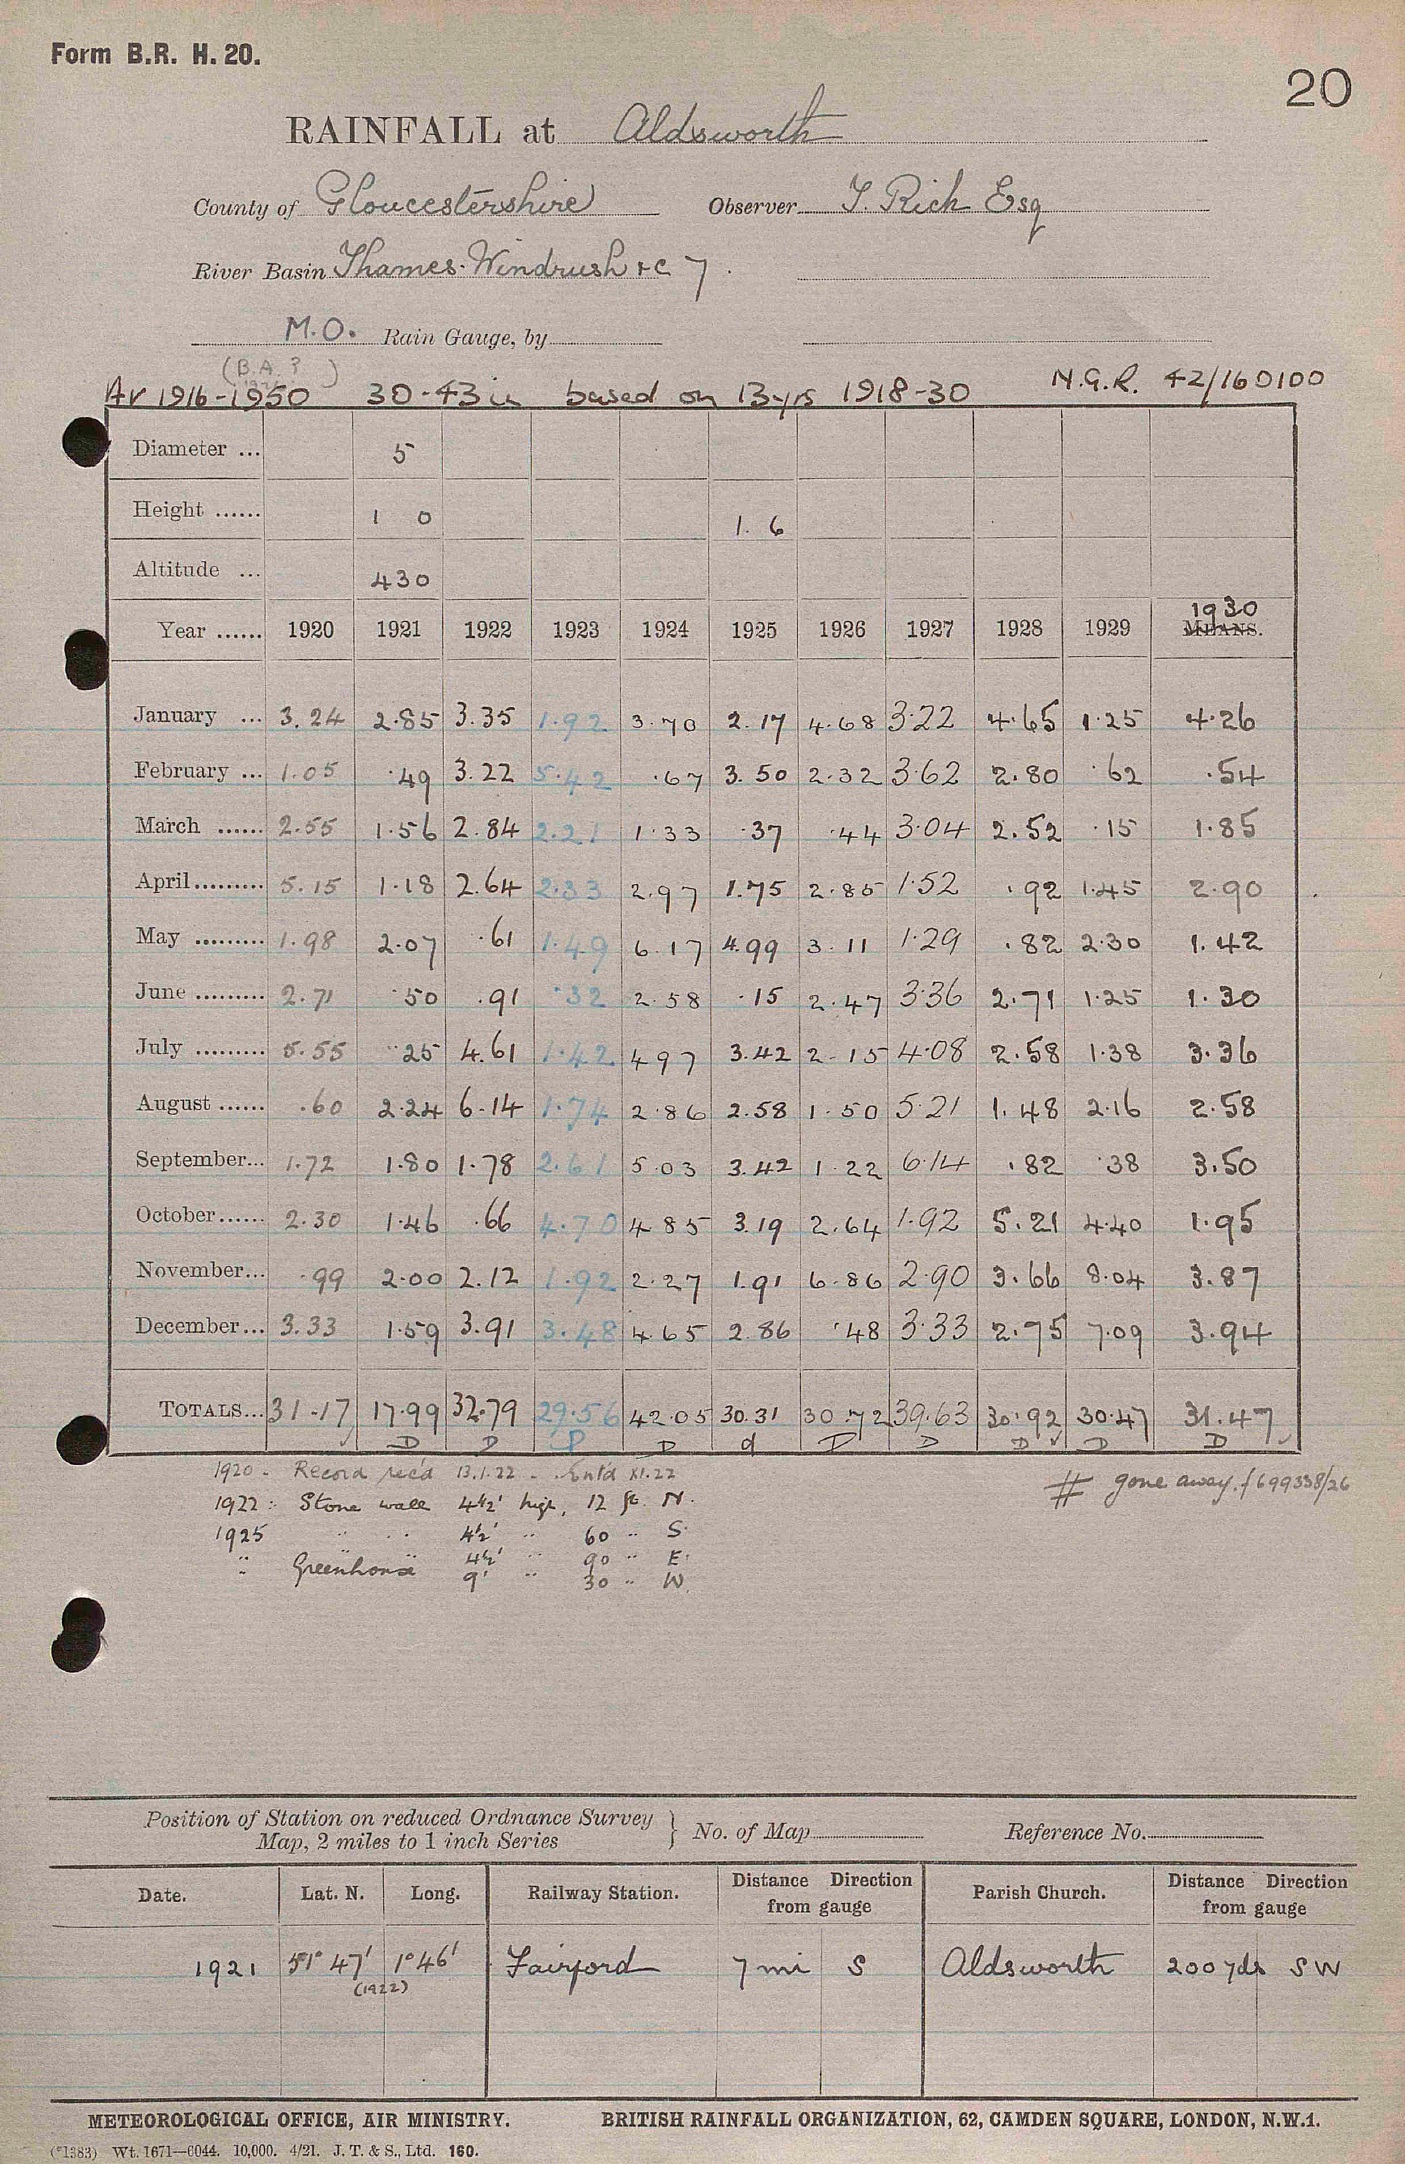 Form B.R. H. 20.
20
RAINFALL at Aldsworth
County of Gloucestershire Observer T. Rich Esq
River Basin Thames. Windrush &c 7.
M.O. Rain Gauge, by
(B.A.? )
Av 1916-1950 30.43 in based on 13 yrs 1918-30 N.G.R. 42/160100
Diameter ... 5
Height ...... 1 0 1. 6
Altitude ... 430
1930
Year ...... 1920 1921 1922 1923 1924 1925 1926 1927 1928 1929 MEANS.
January ... 3.24 2.85 3.35 1.92 3.70 2.17 4.68 3.22 4.65 1.25 4.26
February ... 1.05 .49 3.22 5.42 .67 3.50 2.32 3.62 2.80 .62 .54
March ...... 2.55 1.56 2.84 2.21 1.33 .37 .44 3.04 2.52 .15 1.85
April......... 5.15 1.18 2.64 2.33 2.97 1.75 2.85 1.52 .92 1.45 2.90
May ......... 1.98 2.07 .61 1.49 6.17 4.99 3.11 1.29 .82 2.30 1.42
June ......... 2.71 .50 .91 .32 2.58 .15 2.47 3.36 2.71 1.25 1.30
July ......... 5.55 .25 4.61 1.42 4 97 3.42 2.15 4.08 2.58 1.38 3.36
August ...... .60 2.24 6.14 1.74 2.86 2.58 1.50 5.21 1.48 2.16 2.58
September... 1.72 1.80 1.78 2.61 5.03 3.42 1.22 6.14 .82 .38 3.50
October...... 2.30 1.46 .66 4.70 4.85 3.19 2.64 1.92 5.21 4.40 1.95
November... .99 2.00 2.12 1.92 2.27 1.91 6.86 2.90 3.66 8.04 3.87
December... 3.33 1.59 3.91 3.48 4.65 2.86 .48 3.33 2.75 7.09 3.94
TOTALS... 31.17 17.99 32.79 29.56 42.05 30.31 30.72 39.63 30.92 30.47 31.47
✓ D D P D d D D D ✓ D D ✓
1920 - Record rec'd 13.1.22 - Ent'd XI.22
# gone away. f 699338/26
1922: Stone wall 4½' high, 12 ft. N.
1925 " " 4½' " 60 " S.
" 4½' " 90 " E.
" Greenhouse 9' " 30 " W.
Position of Station on reduced Ordnance Survey
Map, 2 miles to 1 inch Series } No. of Map Reference No.
Date. Lat. N. Long. Railway Station. Distance Direction from gauge Parish Church. Distance Direction from gauge
1921 51° 47' 1° 46' Fairford 7 mi S Aldsworth 200 yds SW
(1922)
METEOROLOGICAL OFFICE, AIR MINISTRY. BRITISH RAINFALL ORGANIZATION, 62, CAMDEN SQUARE, LONDON, N.W.1.
(*1383) Wt. 1671—6044. 10,000. 4/21. J. T. & S., Ltd. 160.